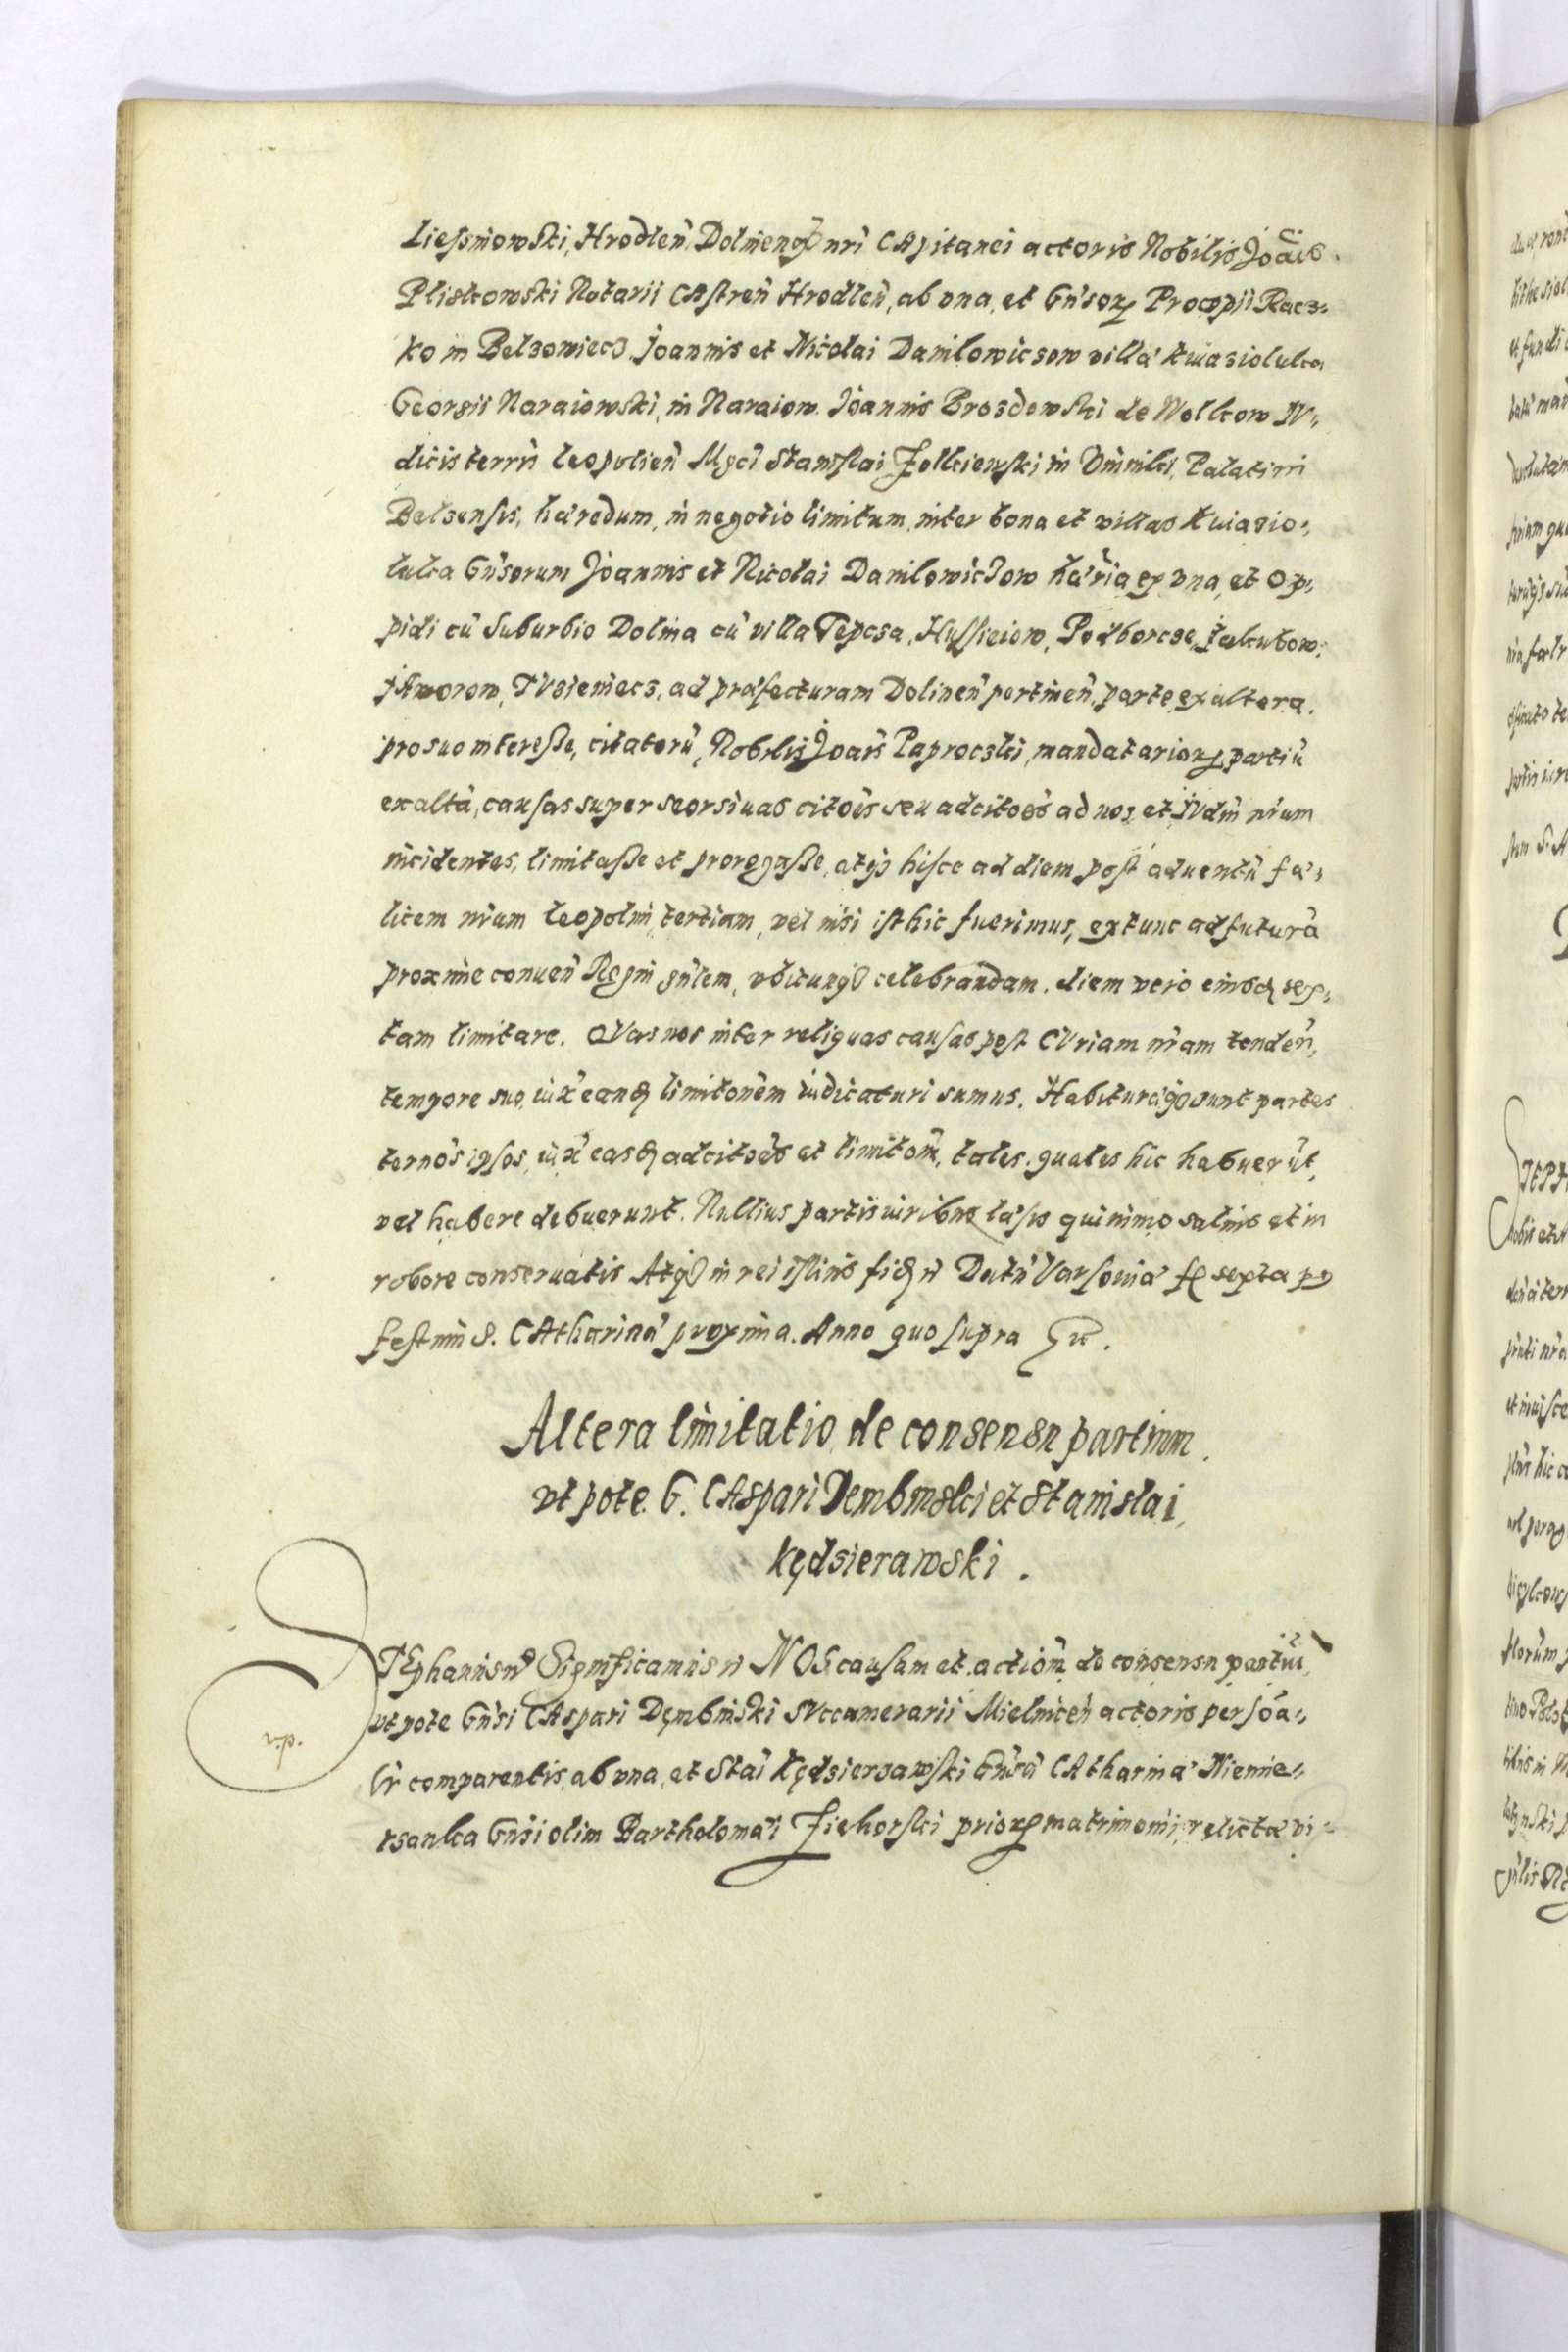 Liessniowski, Hrodlen̄ Dolinenqȝ nr̄i CApitanei actoris Nobilis Joāis
Pliskowski Notarii CAstren̄ Hrodlen̄, ab vna, et Gn̄sorꝝ Procopii Racz⸗
ko in Belzowiecz, Joannis et Nicolai Danilowiczow villæ Kniaziolulca
Georgii Naraiowski, in Naraiow. Joannis Brozdowski de Wolkow IV⸗
dicis terrn̄ Leopolien̄ Mgcī Stanislai Zolkiewski in Palatini
Belzensis, hæredum, in negotio limitum, inter bona et villas Kniazio⸗
lulca Gn̄sorum Joannis et Nicolai Danilowiczow hǣria ex vna, et Op⸗
pidi cū Suburbio Dolina cū villa Tepcza, Hussieiow, Podborcze, Jakubow,
JAworow, TVzieniecz, ad præfecturam Dolinen̄ pertinen̄, parte ex altera,
pro suo interesse, citatorū, Nobilis Joan̄s Paproczki, mandatariorꝝ partiū
ex altā, causas super seorsiuas citōis seu adcitōes ad nos et IVdm̄ nr̄um
incidentes, limitasse et prorogasse, atqȝ hisce ad diem post aduentū fæ⸗
licem nr̄um Leopolim tertiam, vel nisi isthic fuerimus, extunc ad futurā
proxime conuen̄ Regni gn̄lem, vbicunqȝ celebrandam. diem vero eiusdē sex⸗
tam limitare. QVas nos inter reliquas causas post CVriam nr̄am tenden̄,
tempore suo, iux̄ eandē limitōnem iudicaturi sumus. Habituræqȝ sunt partes
tern̄os ipsos, iux̄ easdē adcitōes et limitōm̄, tales, quales hic habuerūt,
vel habere debuerunt. Nullius partis iuribus læsis quinimo saluis et in
robore conseruatis Atqȝ in rei istius fidē n̄ Datn̄ Varsouiæ fr̄ sexta pꝰ
festum S. CAtharinæ proxima. Anno quo supra &c.
Altera limitatio, de consensu partium
vt pote. G. CAspari Dembinski et Stanislai
Kędzierawski.
STEphanusnꝰ Significamus n̄ NOS causam et actiōm̄ de consensu partiū,
vt pote Gn̄si CAspari Dęmbinski SVccamerarii Mielnicen̄ actoris persōa⸗
lr̄ comparentis, ab vna, et Stāi Kędzierzawski Gn̄sæ CAtharinæ Niemie⸗
rzanka Gn̄si olim Bartholomæi Ziehorski priorꝝ matrimonii, relictæ vi⸗